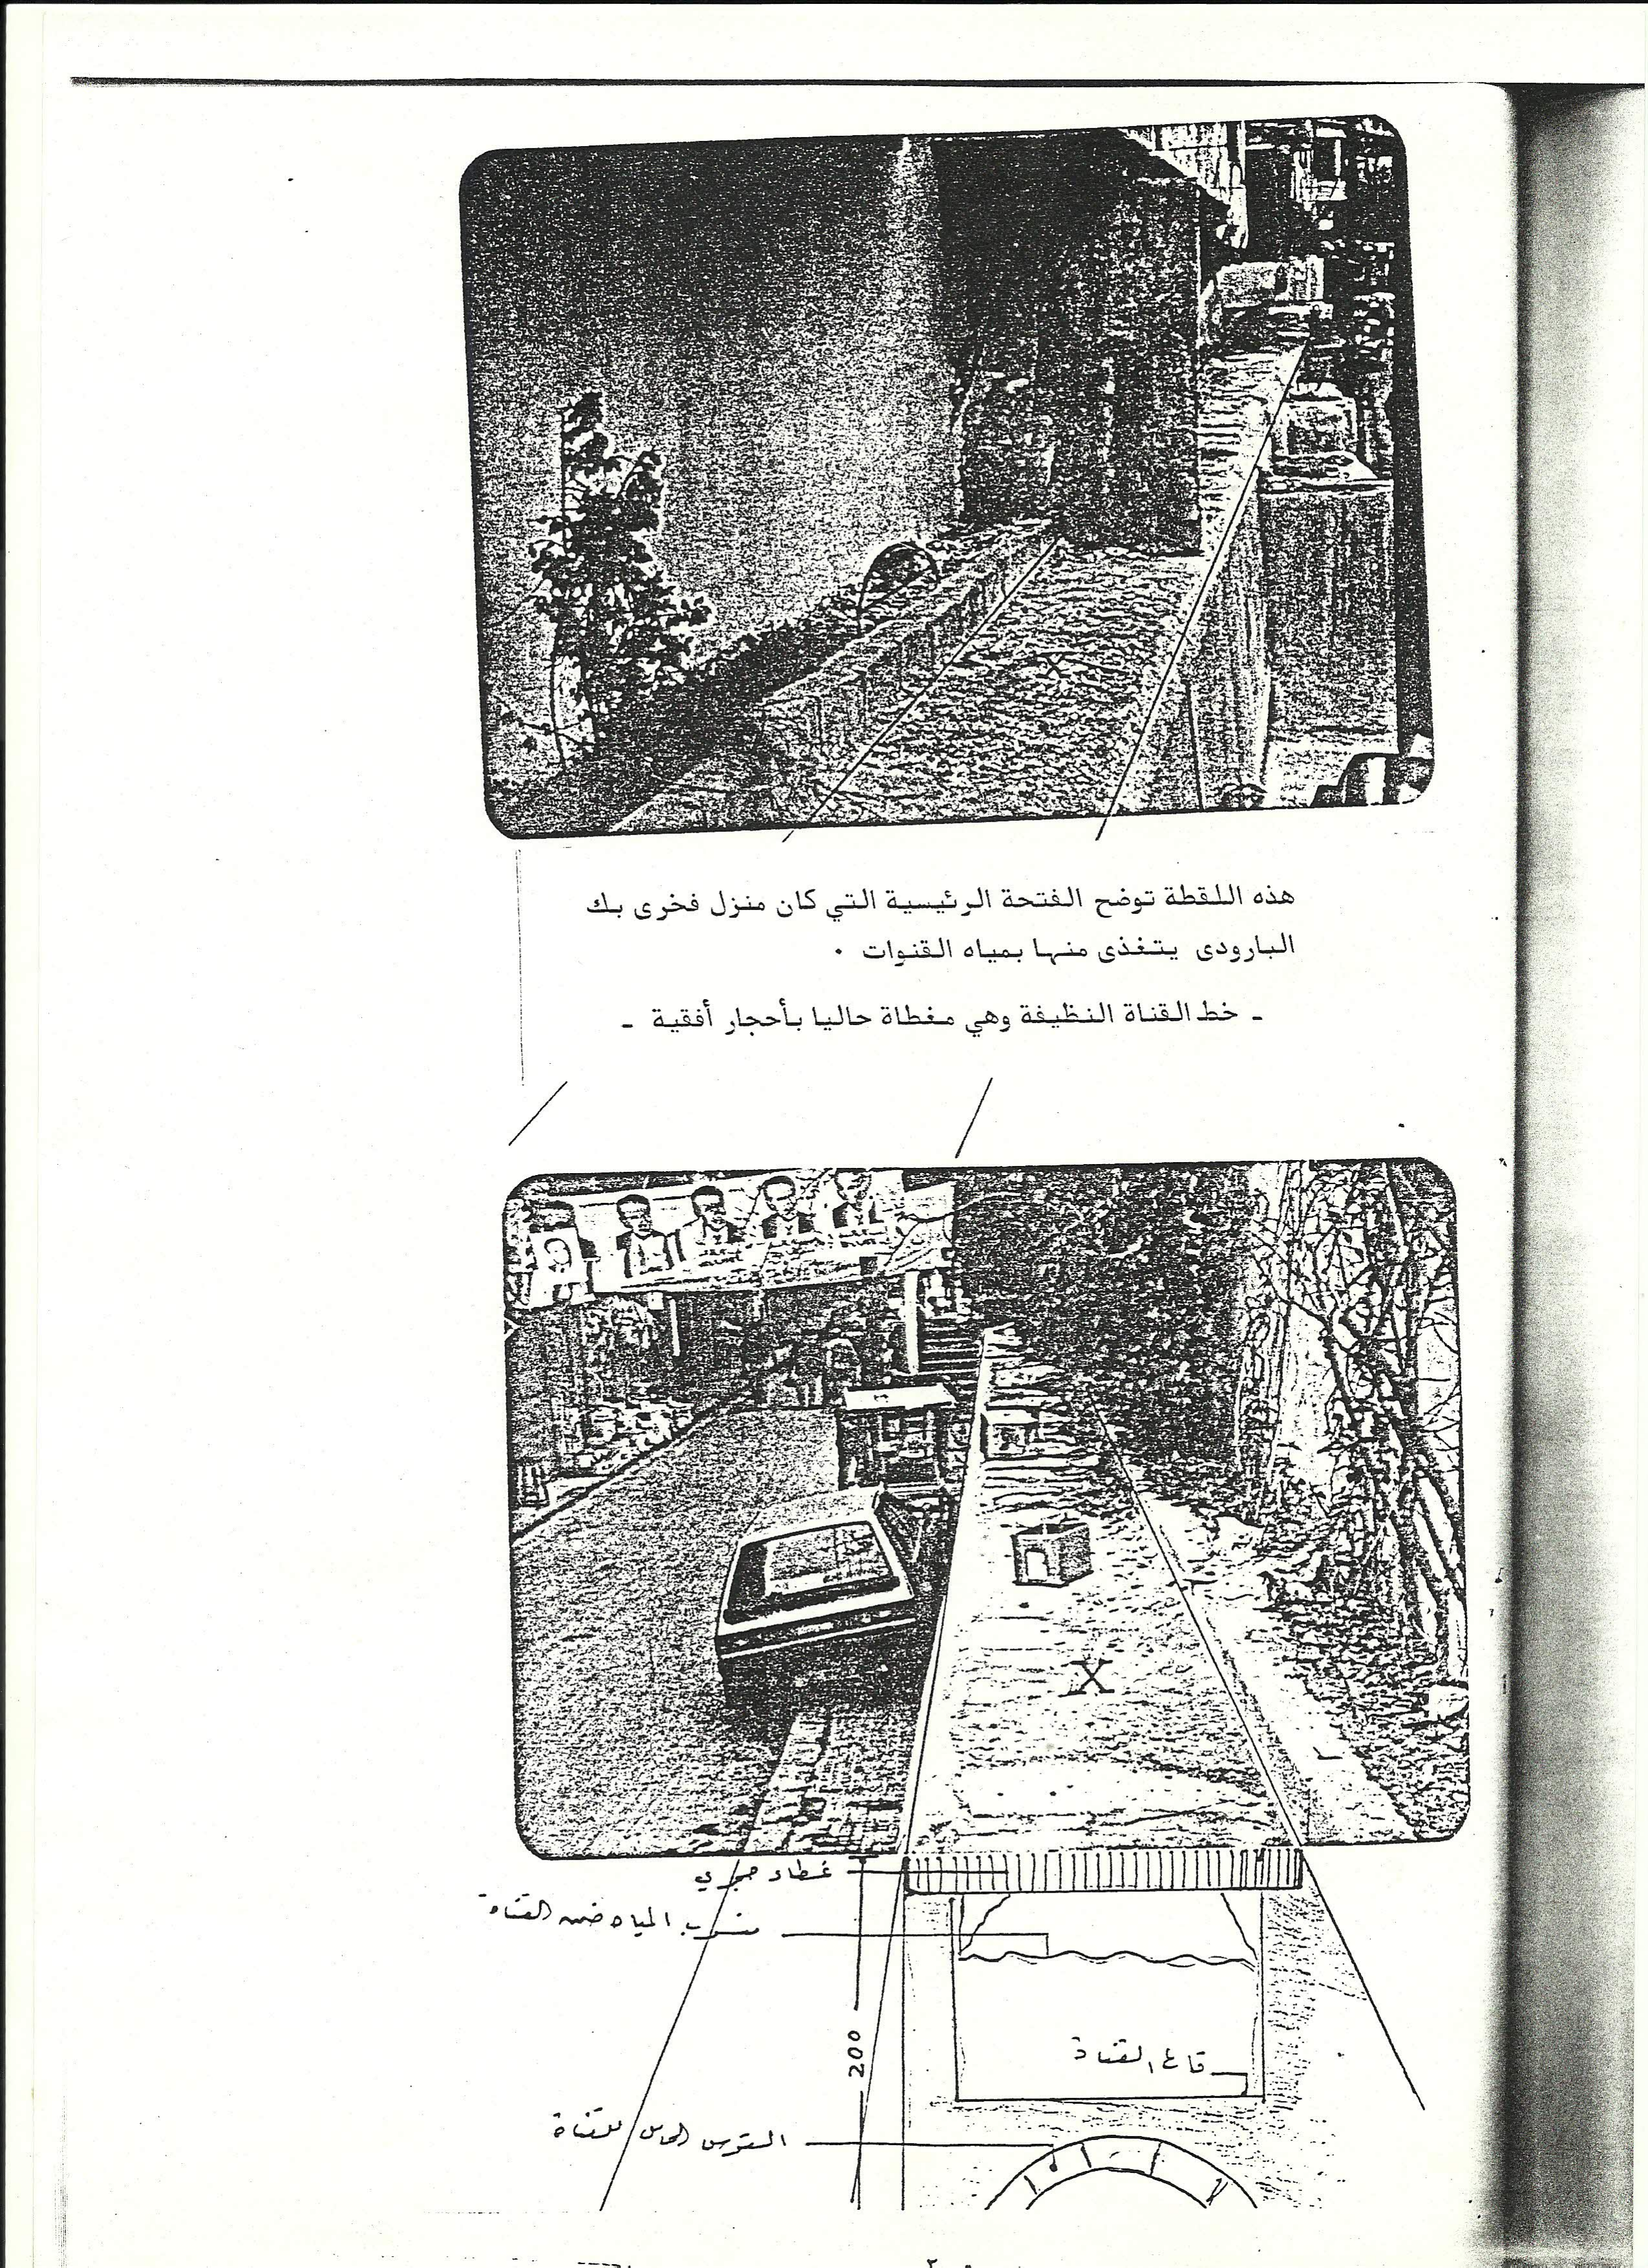 هذه اللقطة توضح الفتحة الرئيسية التي كان منزل فخرى بك
البارودى يتغذى منها بمياه القنوات ٠
ـ خط القناة النظيفة وهي مغطاة حاليا بأحجار أفقية ـ
X
غطاء حجري
منسوب المياه ضمن القناة
200
قاع القناة
القوس الحامل للقناة